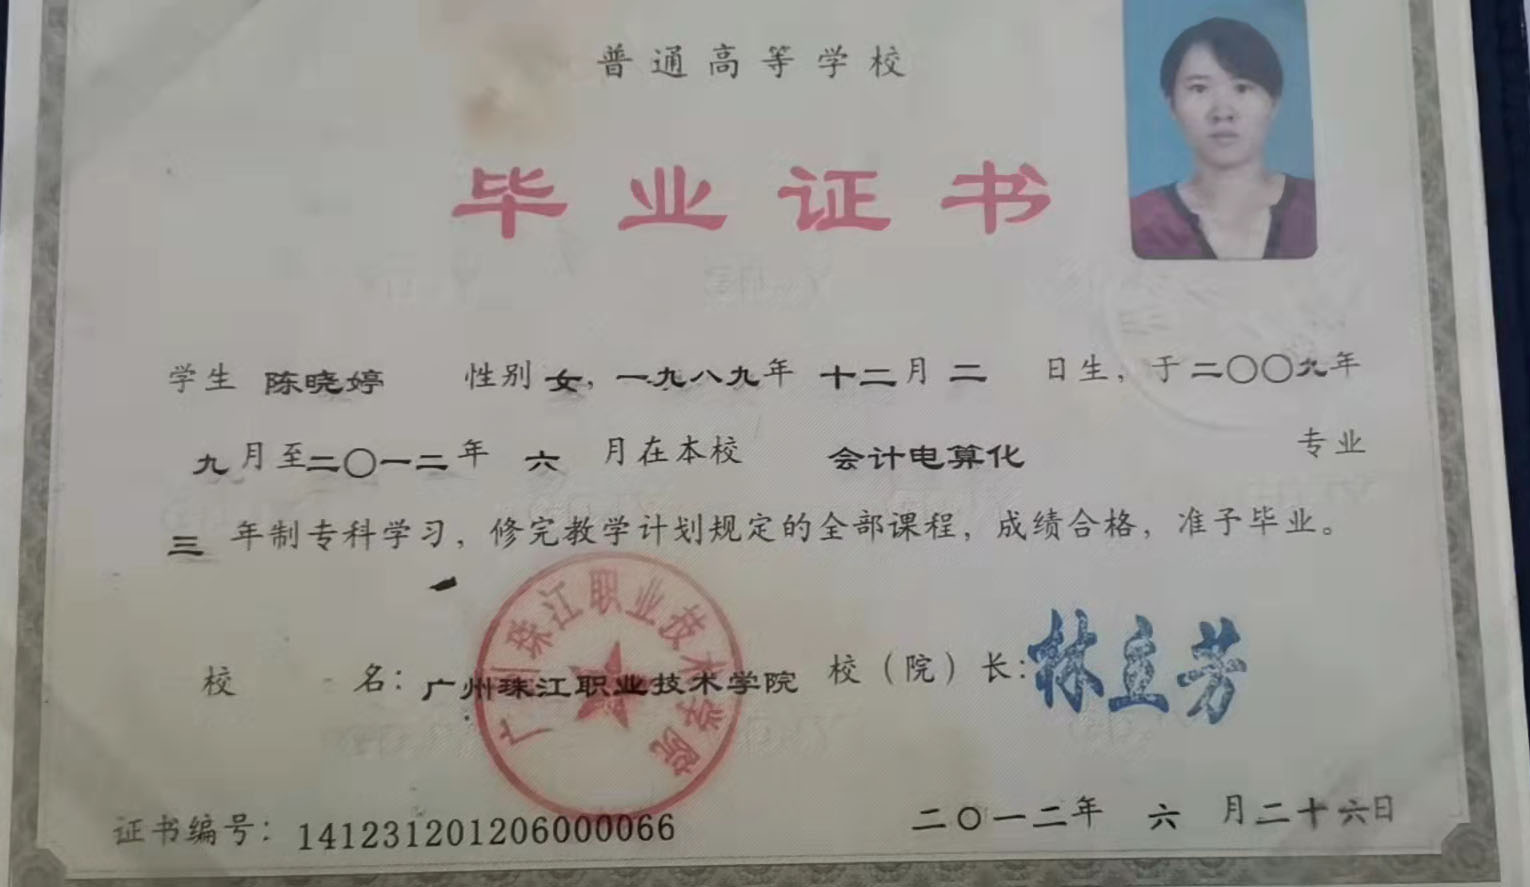 普通高等学校
毕业证书
学生 陈晓婷 性别 女，一九八九年 十二月 二 日生，于二〇〇九年
九月至二〇一二年 六 月在本校 会计电算化 专业
三 年制专科学习，修完教学计划规定的全部课程，成绩合格，准予毕业。
校 名：广州珠江职业技术学院 校（院）长：林立芳
广州珠江职业技术学院
证书编号：141231201206000066 二〇一二年 六 月二十六日